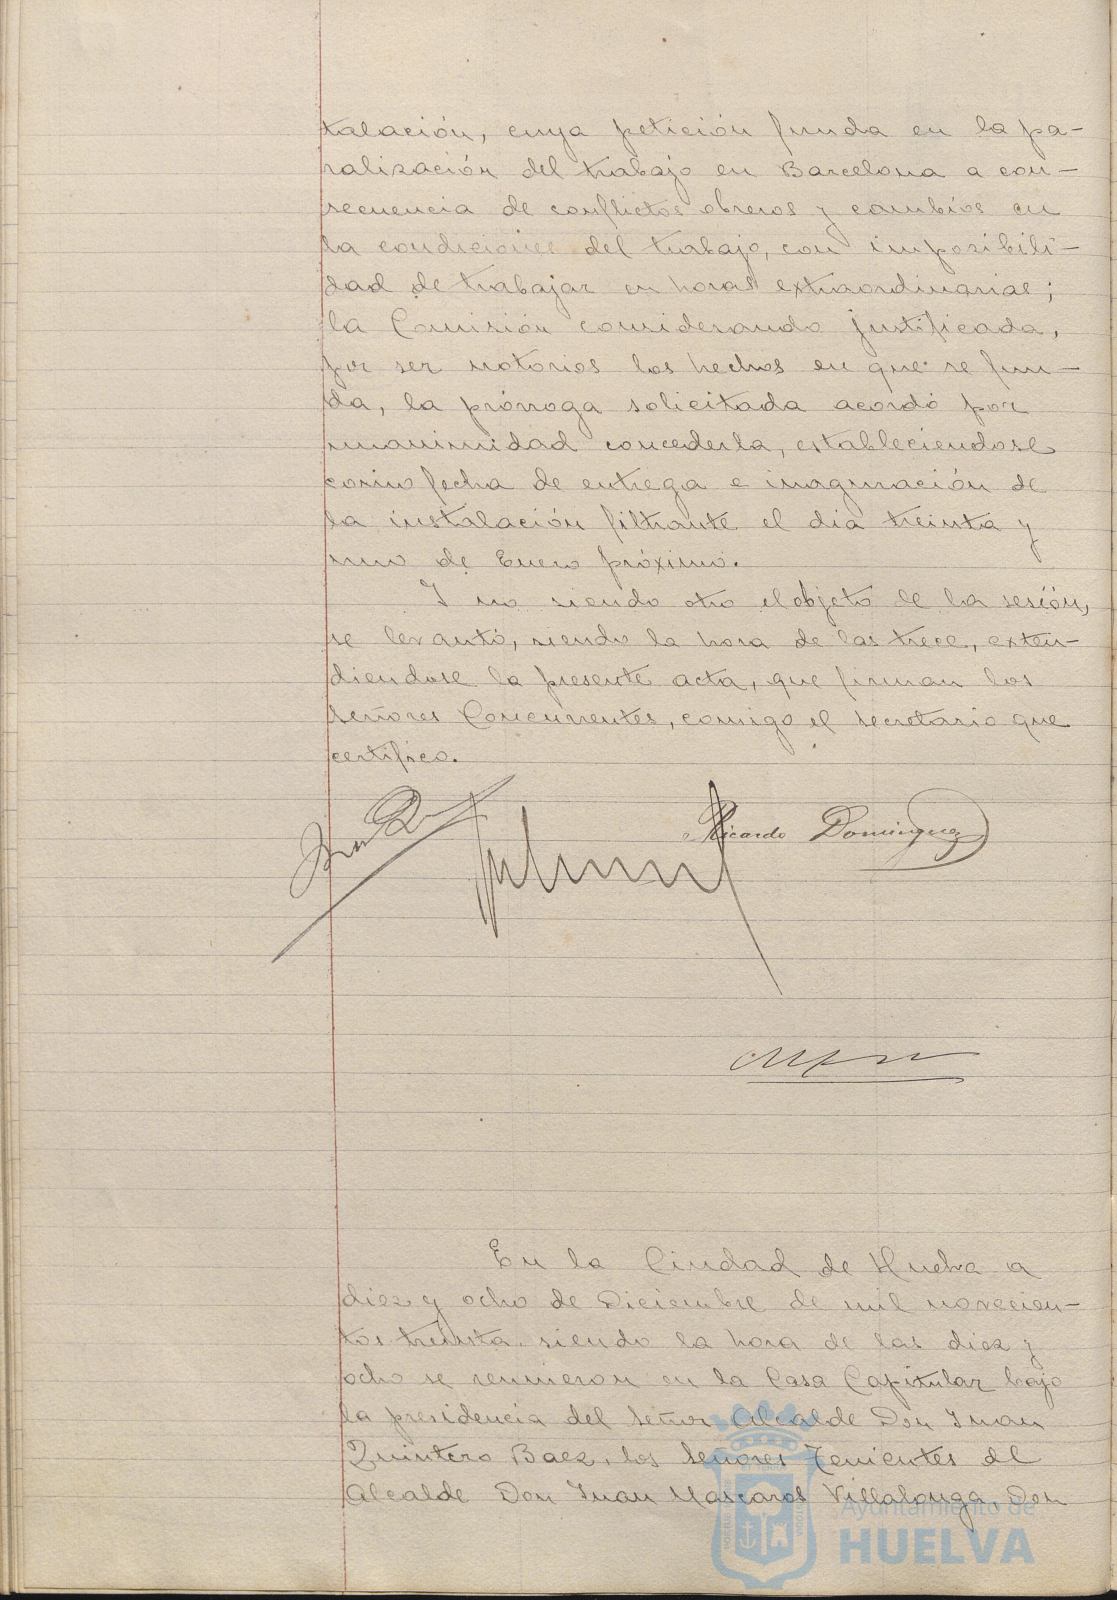 talación, cuya petición funda en la pa-
ralización del trabajo en Barcelona a con-
secuencia de conflictos obreros y cambios en
la condiciones del trabajo, con imposibili-
dad de trabajar en horas extraordinarias;
la Comisión considerando justificada,
por ser notorios los hechos en que se fun-
da, la prórroga solicitada acordó por
unanimidad concederla, estableciendose
como fecha de entrega e inaguración de
la instalación filtrante el dia treinta y
uno de Enero próximo.
Y no siendo otro el objeto de la sesión,
se levantó, siendo la hora de las trece, exten-
diendose la presente acta, que firman los
señores Concurrentes, comigo el secretario que
certifico.
Ricardo Dominguez
En la Ciudad de Huelva a
diez y ocho de Diciembre de mil novecien-
tos treinta, siendo la hora de las diez y
ocho se reunieron en la Casa Capitular bajo
la presidencia del señor Alcalde Don Juan
Quintero Baez, los señores Tenientes de
Alcalde Don Juan Mascaros Villalonga, Don
Ayuntamiento de
HUELVA